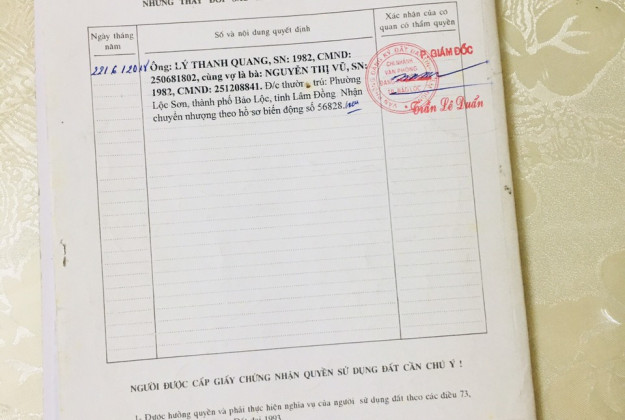 NHỮNG THAY ĐỔI
Ngày tháng năm
Số và nội dung quyết định
Xác nhận của cơ quan có thẩm quyền
Ông: LÝ THANH QUANG, SN: 1982, CMND:
250681802, cùng vợ là bà: NGUYỄN THỊ VŨ, SN:
1982, CMND: 251208841. Đ/c thường trú: Phường
Lộc Sơn, thành phố Bảo Lộc, tỉnh Lâm Đồng. Nhận
chuyển nhượng theo hồ sơ biến động số 56828.
P. GIÁM ĐỐC
CHI NHÁNH
VĂN PHÒNG
Trần Lê Duẩn
NGƯỜI ĐƯỢC CẤP GIẤY CHỨNG NHẬN QUYỀN SỬ DỤNG ĐẤT CẦN CHÚ Ý !
1- Được hưởng quyền và phải thực hiện nghĩa vụ của người sử dụng đất theo các điều 73,
1993